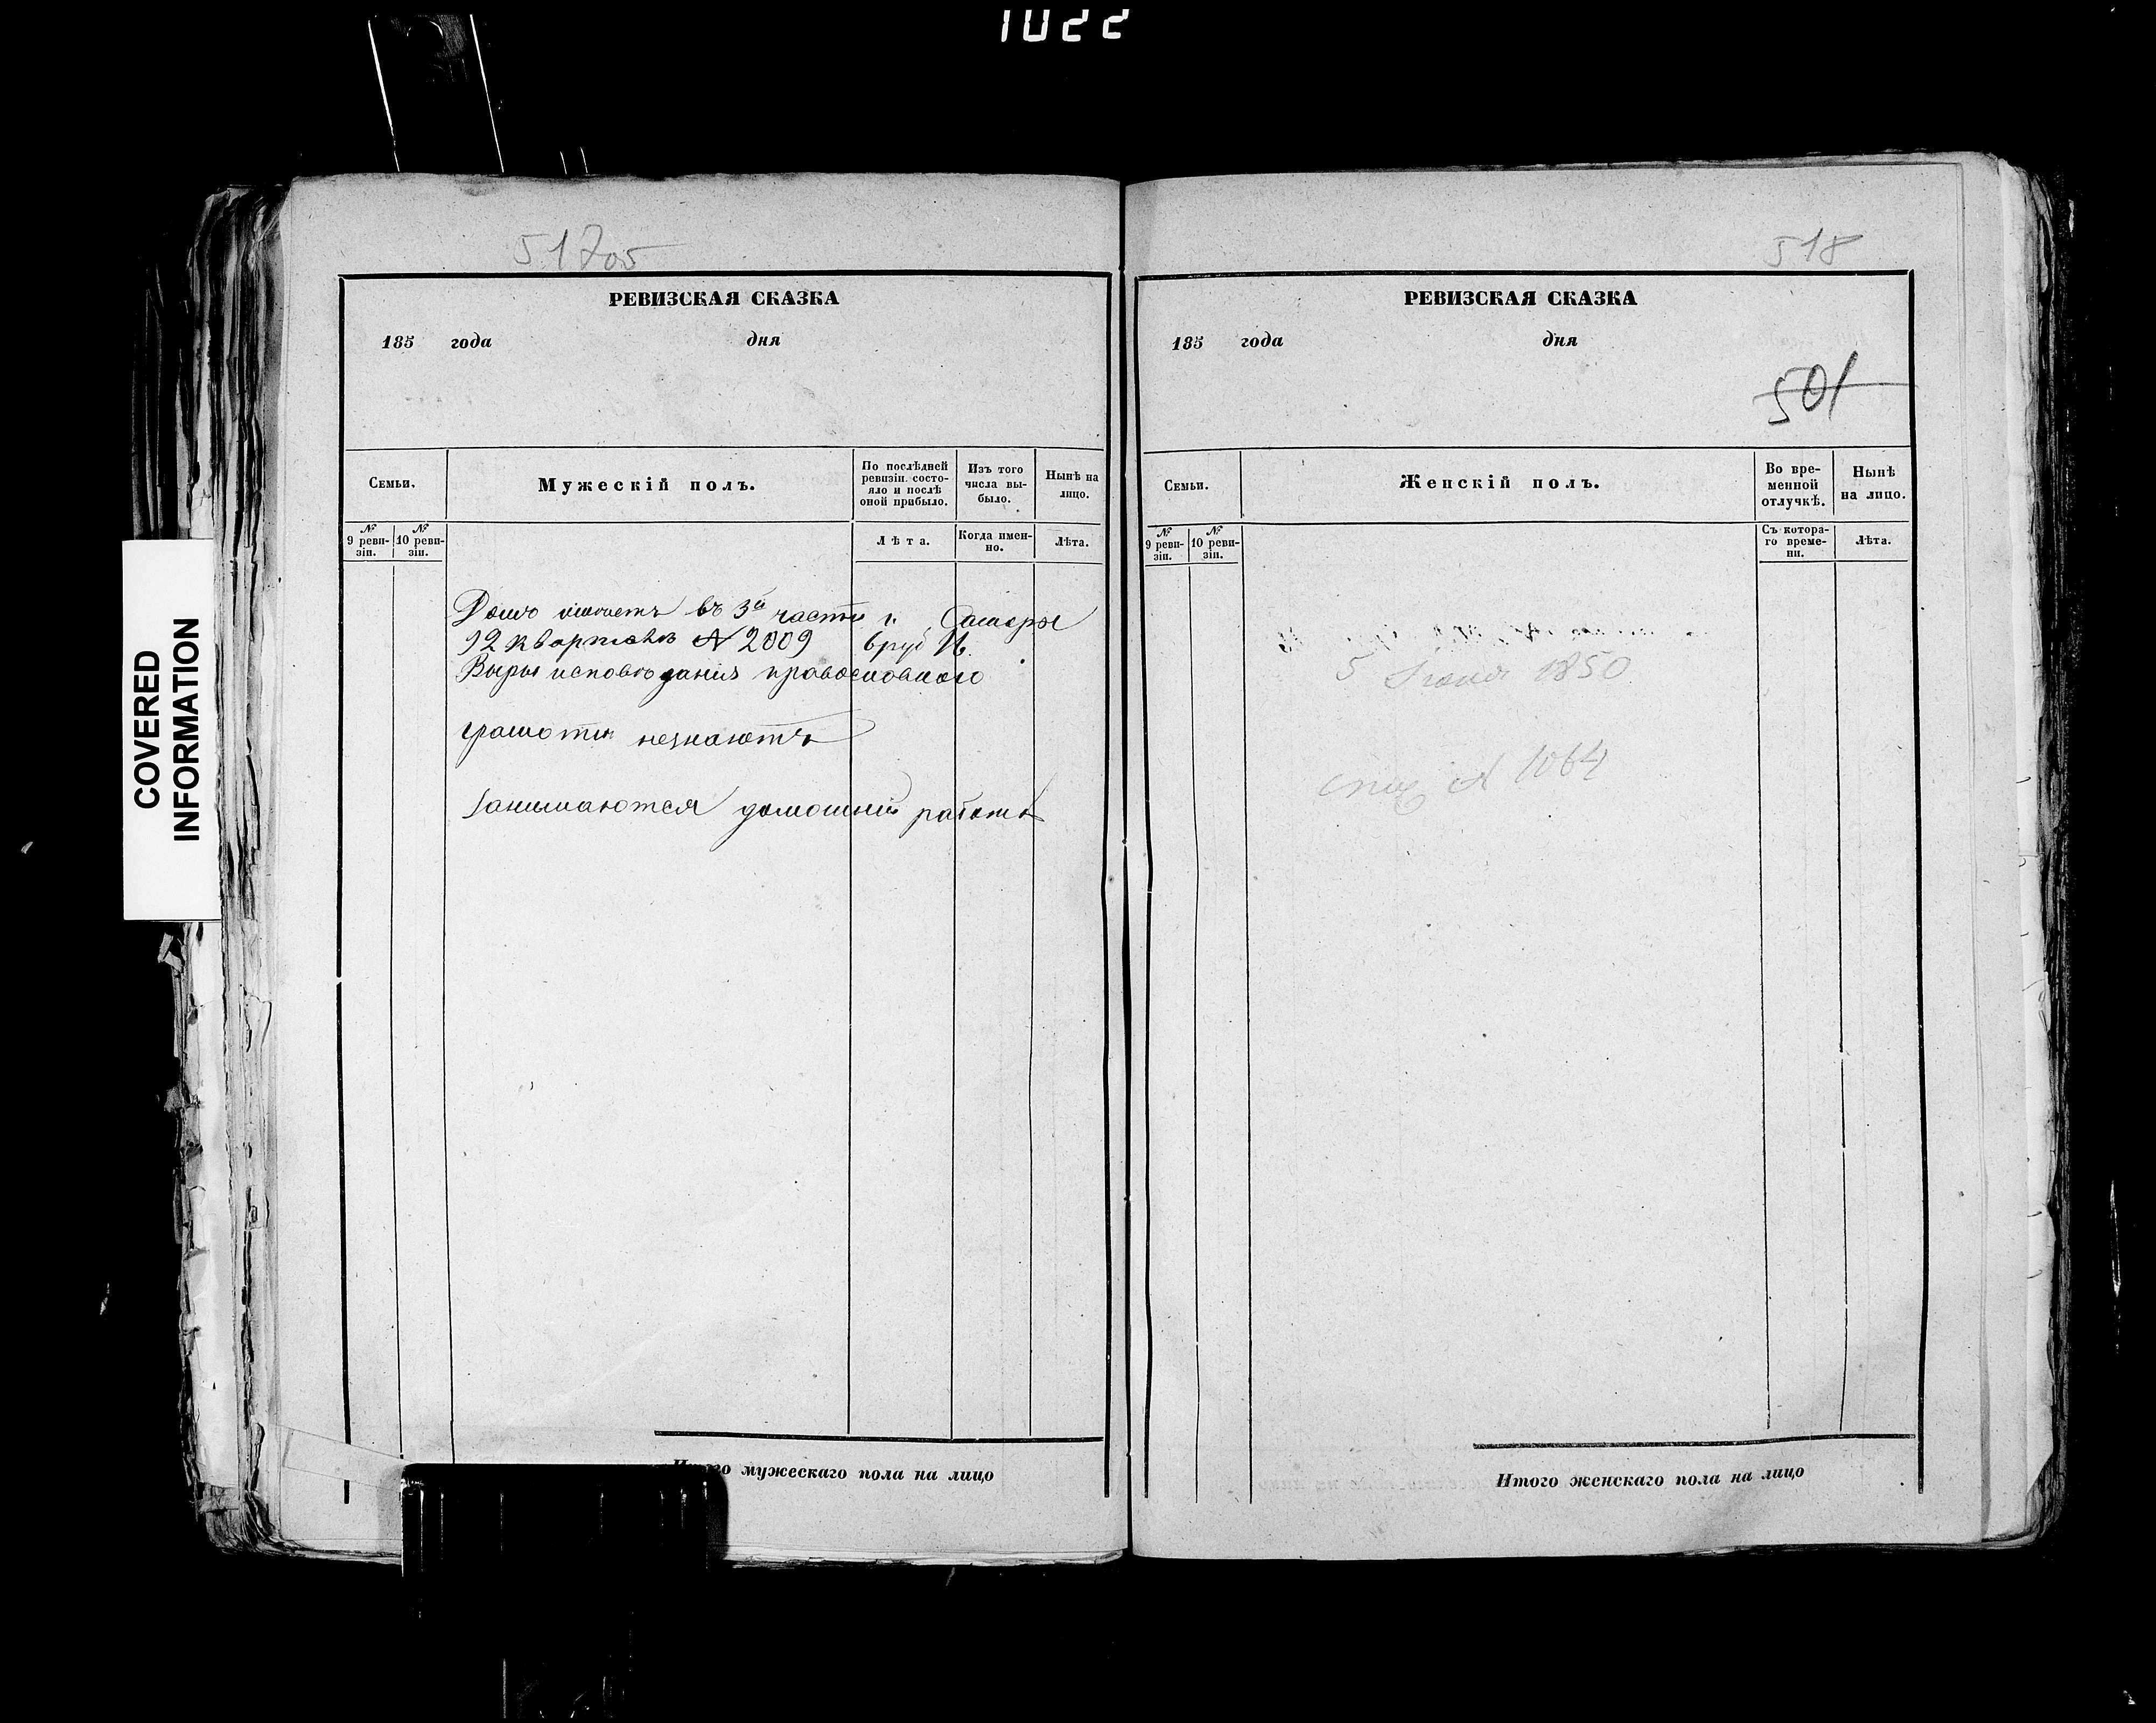 1022
517об
РЕВИЗСКАЯ СКАЗКА
185 года дня
Семьи.
Мужескій полъ.
По послѣдней ревизіи состояло и послѣ оной прибыло.
Изъ того числа выбыло.
Нынѣ на лицо.
№ 9 ревизіи.
№ 10 ревизіи.
Лѣта.
Когда именно.
Лѣта.
Домъ имѣетъ въ 3й части г. Самары
92 квартала № 2009
Вѣры исповѣданія православного
грамоти незнаютъ
занимаются домошней работѣ
Итого мужескаго пола на лицо
518
РЕВИЗСКАЯ СКАЗКА
185 года дня
501
Семьи.
Женскій полъ.
Во временной отлучкѣ.
Нынѣ на лицо.
№ 9 ревизіи.
№ 10 ревизіи.
Съ котораго времени.
Лѣта.
5 1850
№ 1064
Итого женскаго пола на лицо
COVERED
INFORMATION